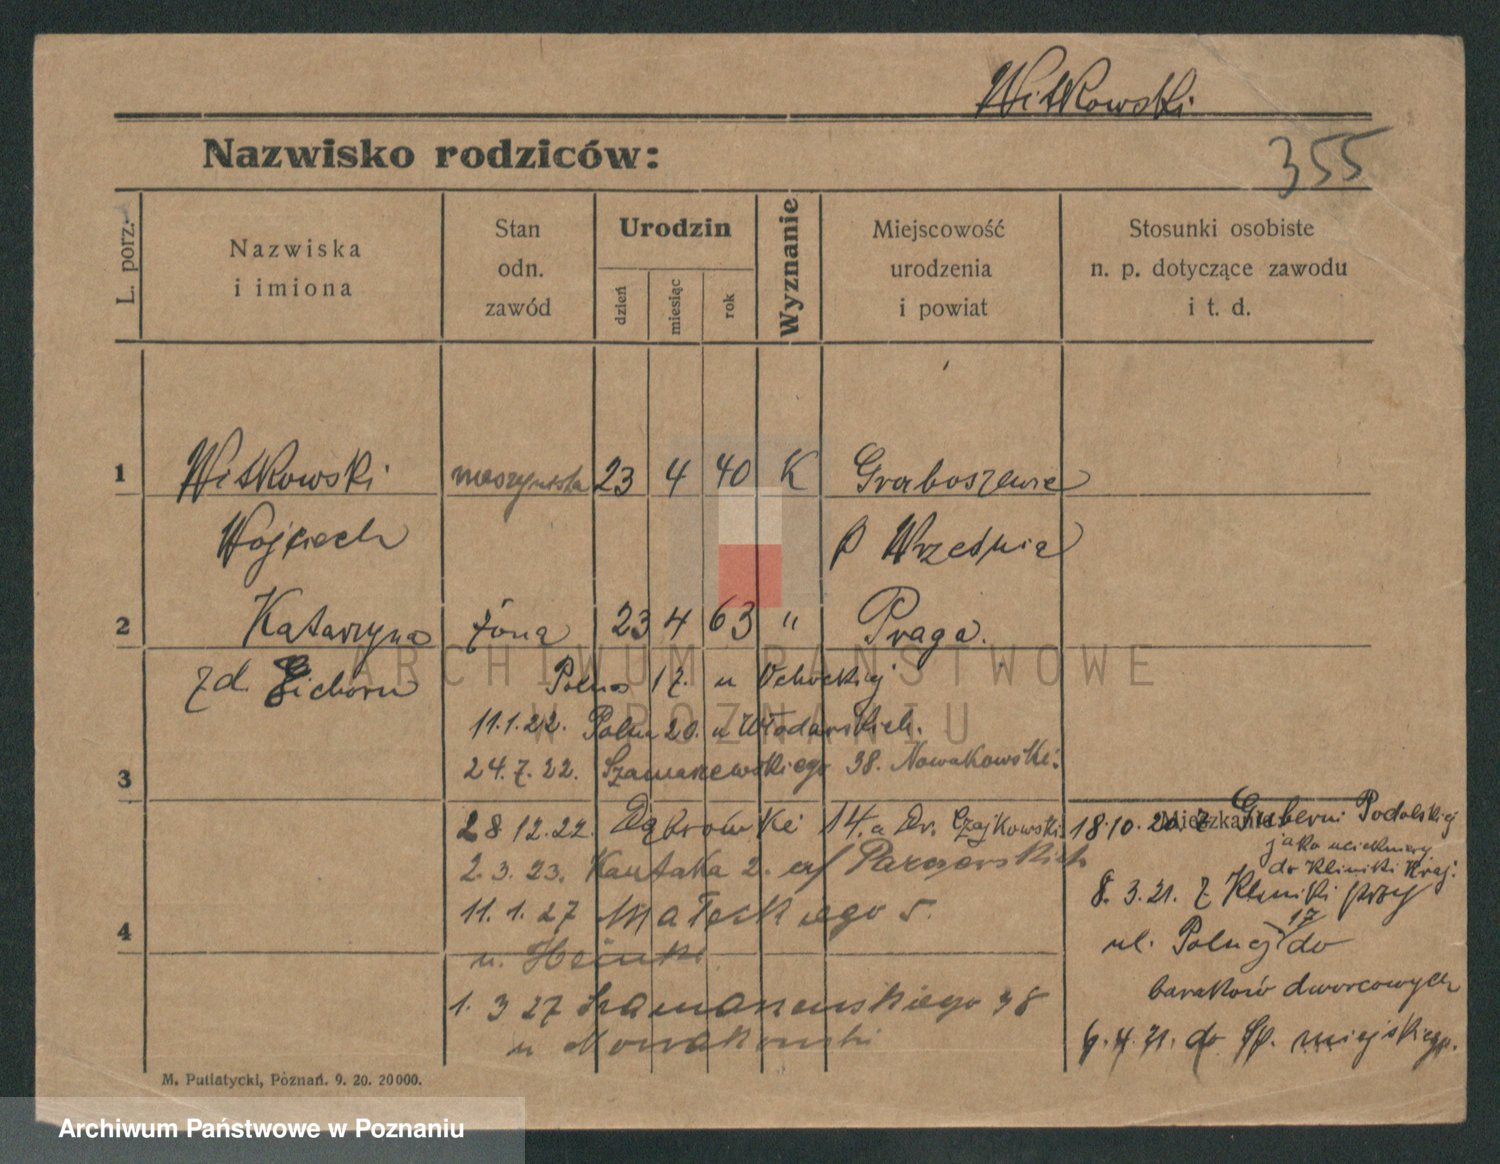 Witkowski
Nazwisko rodziców:
355
L. porz.
Nazwiska
i imiona
Stan
odn.
zawód
Urodzin
dzień
miesiąc
rok
Wyznanie
Miejscowość
urodzenia
i powiat
Stosunki osobiste
n. p. dotyczące zawodu
i t. d.
1 Witkowski maszynista 23 4 40 K Graboszewie
Wojciech p Września
2 Katarzyna żona 23 4 63 " Praga.
zd. Eichorn
Polna 17. u Ochockiej
11.1.22. Polna 20. u Włodarskich.
3 24.7.22. Szamarzewskiego 38. Nowakowski.
28.12.22. Dąbrówki 14.a Dr. Czajkowski
2.3.23. Kantaka 2.
4 11.1.27 Małeckiego 5.
u.
1.3 27 Szamarzewskiego 38
u Nowakowski
Mieszkanie
18.10.20. z Guberni Podolskiej
jako
do Kliniki Kraj.
8.3.21. z Kliniki przy
ul. Polnej 17 do
baraków dworcowych
6.4.21. do Sp. miejskiego.
M. Putiatycki, Poznań. 9. 20. 20000.
ARCHIWUM PAŃSTWOWE
W POZNANIU
Archiwum Państwowe w Poznaniu